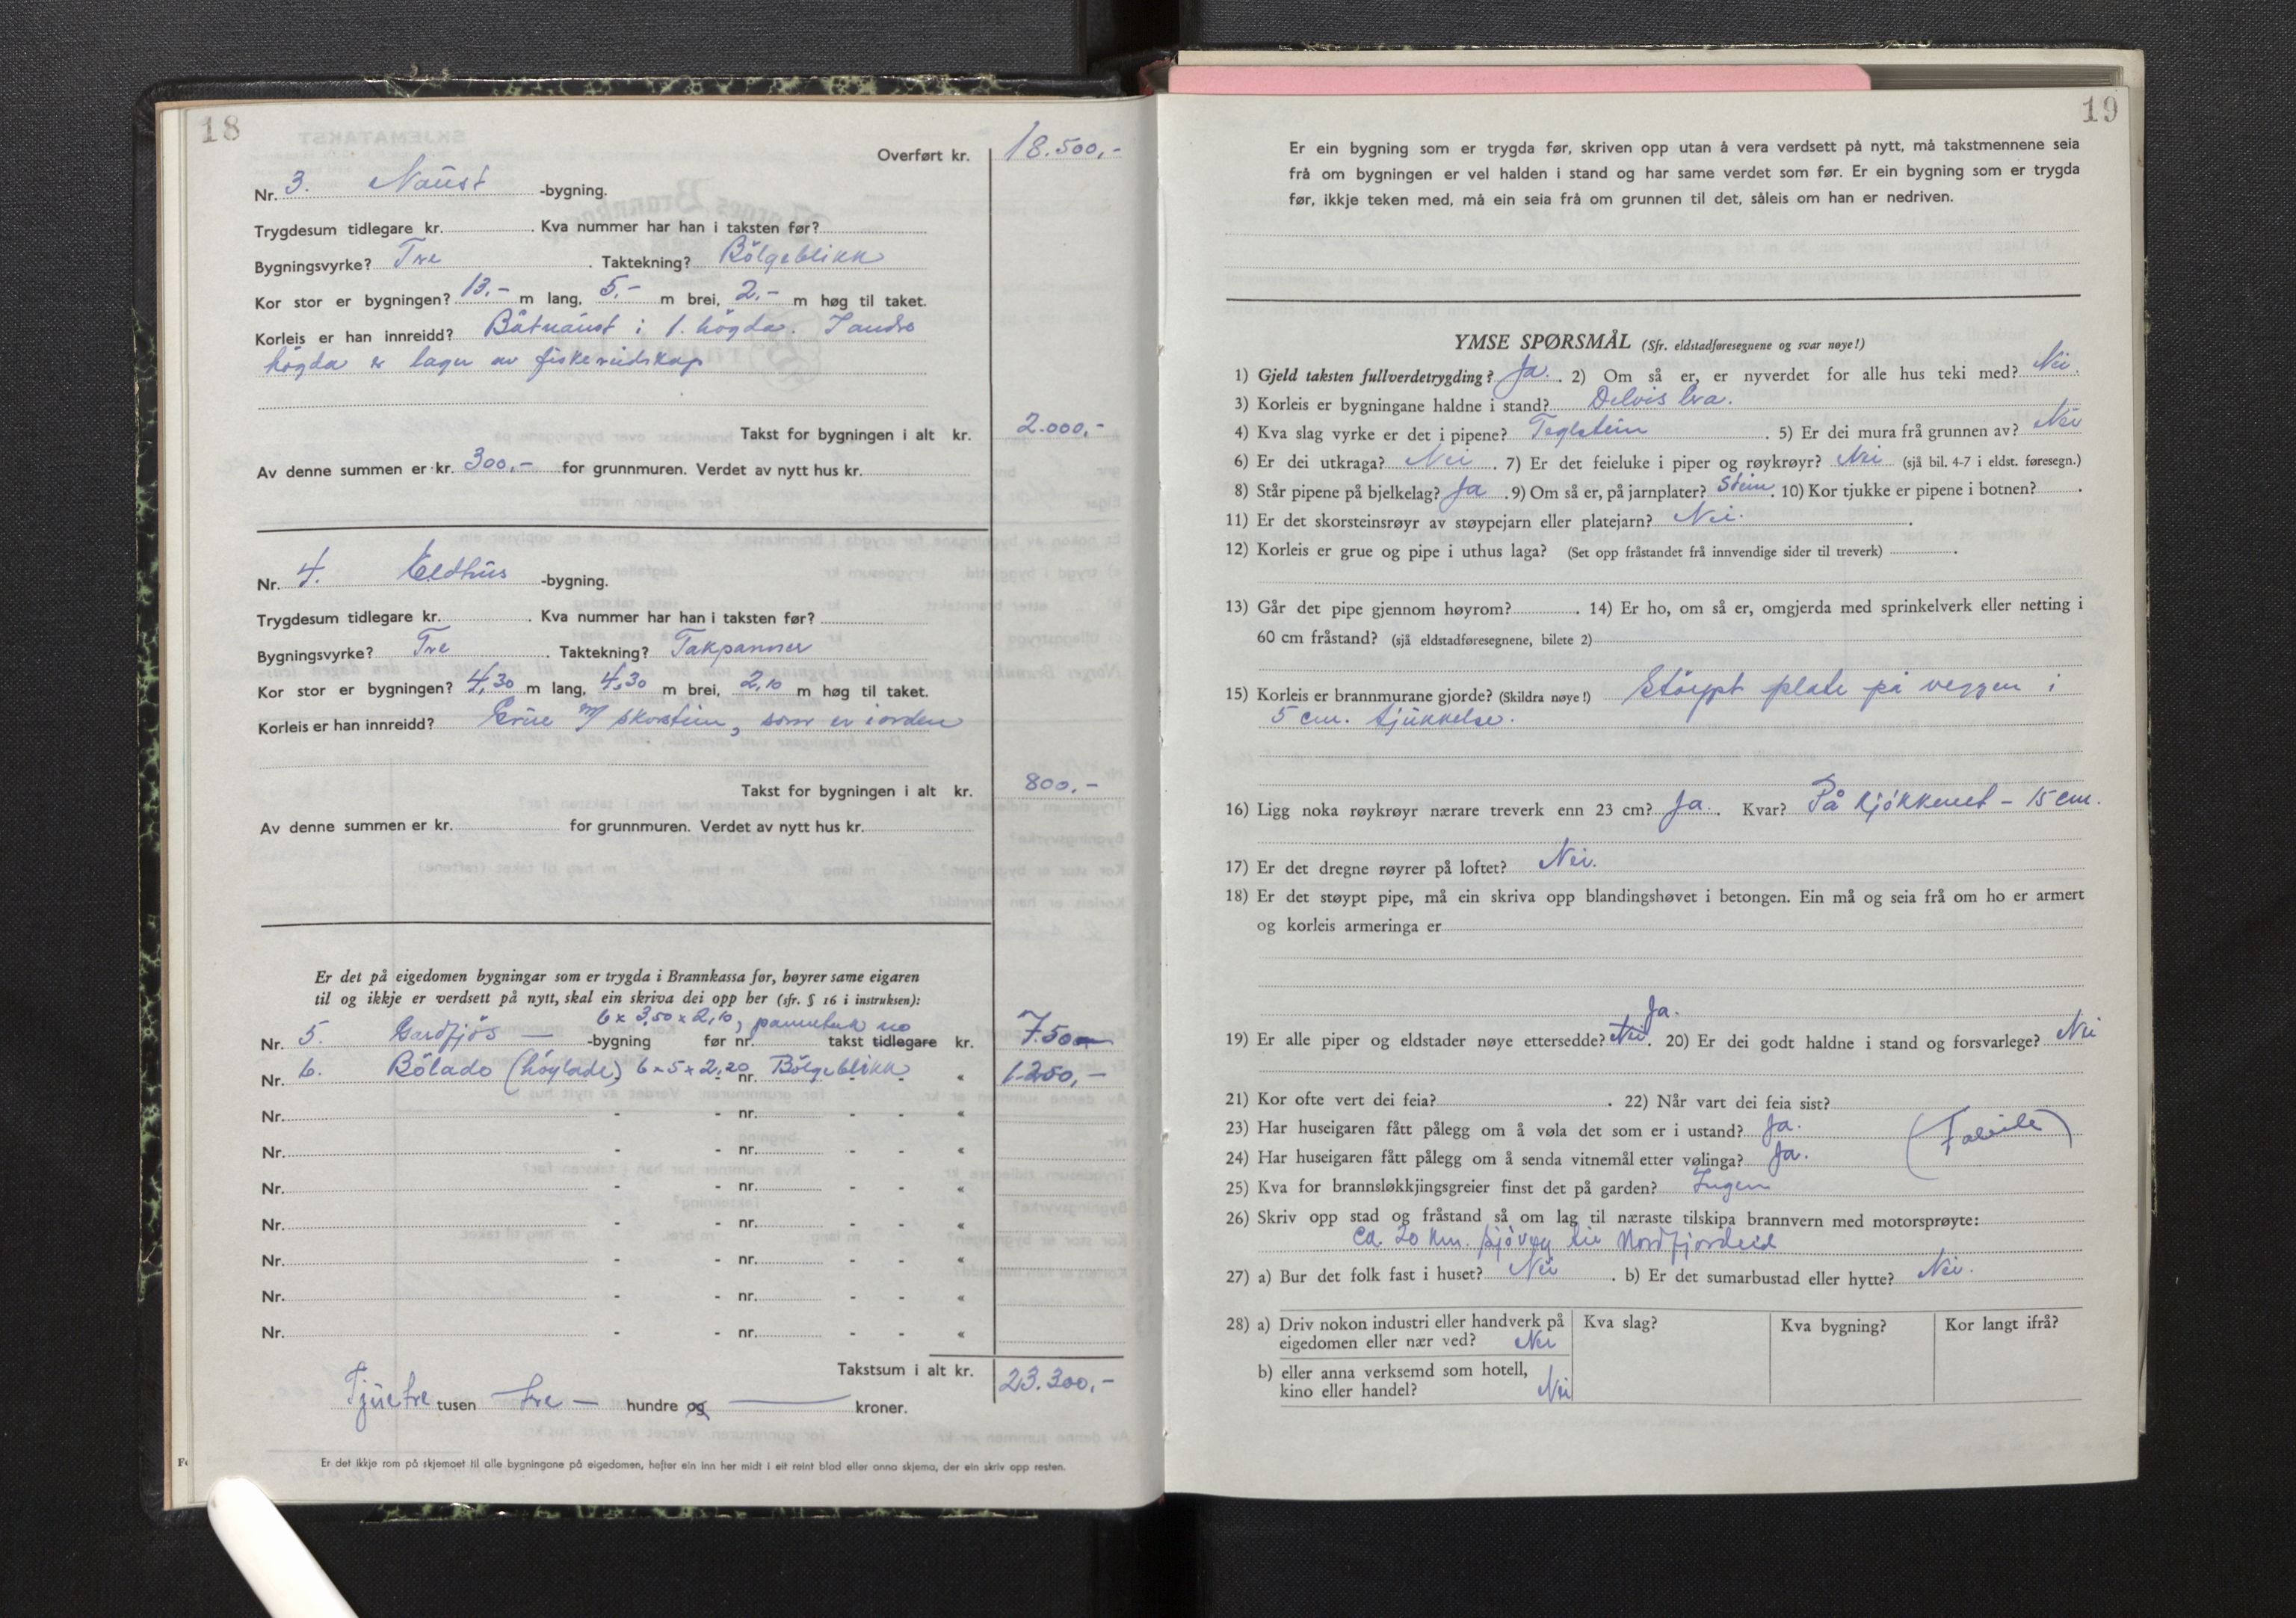 18
Overført kr. 18.500,-
Nr. 3. Naust -bygning.
Trygdesum tidlegare kr. . Kva nummer har han i taksten før?
Bygningsvyrke? Tre . Taktekning? Bölgeblikk
Kor stor er bygningen? 13.- m lang, 5,- m brei, 2,- m høg til taket.
Korleis er han innreidd? Båtnaust i 1. högda. I andre
högda er lager av fiskereidskap
Takst for bygningen i alt kr. 2.000,-
Av denne summen er kr. 300,- for grunnmuren. Verdet av nytt hus kr.
Nr. 4. Eldhus -bygning.
Trygdesum tidlegare kr. . Kva nummer har han i taksten før?
Bygningsvyrke? Tre . Taktekning? Takpanner
Kor stor er bygningen? 4,30 m lang, 4,30 m brei, 2,10 m høg til taket.
Korleis er han innreidd? Grue m/ skorstein, som er i orden
Takst for bygningen i alt kr. 800,-
Av denne summen er kr. for grunnmuren. Verdet av nytt hus kr.
Er det på eigedomen bygningar som er trygda i Brannkassa før, høyrer same eigaren
til og ikkje er verdsett på nytt, skal ein skriva dei opp her (sfr. § 16 i instruksen):
6 x 3,50 x 2,10, pannetak
Nr. 5. Gardfjös — -bygning før nr. takst tidlegare kr. 750
Nr. 6. Bölado (höylade) 6 x 5 x 2,20 nr. Bölgeblikk - - « 1.250,-
Nr. - - nr. - - «
Nr. - - nr. - - «
Nr. - - nr. - - «
Nr. - - nr. - - «
Nr. - - nr. - - «
Nr. - - nr. - - «
Nr. - - nr. - - «
Takstsum i alt kr. 23.300,-
Tjuetre tusen tre — hundre og — kroner.
Er det ikkje rom på skjemaet til alle bygningane på eigedomen, hefter ein inn her midt i eit reint blad eller anna skjema, der ein skriv opp resten.
19
Er ein bygning som er trygda før, skriven opp utan å vera verdsett på nytt, må takstmennene seia
frå om bygningen er vel halden i stand og har same verdet som før. Er ein bygning som er trygda
før, ikkje teken med, må ein seia frå om grunnen til det, såleis om han er nedriven.
YMSE SPØRSMÅL (Sfr. eldstadføresegnene og svar nøye!)
1) Gjeld taksten fullverdetrygding? Ja. . 2) Om så er, er nyverdet for alle hus teki med? Nei.
3) Korleis er bygningane haldne i stand? Delvis bra.
4) Kva slag vyrke er det i pipene? Teglstein . 5) Er dei mura frå grunnen av? Nei
6) Er dei utkraga? Nei . 7) Er det feieluke i piper og røykrøyr? Nei (sjå bil. 4-7 i eldst. føresegn.)
8) Står pipene på bjelkelag? Ja . 9) Om så er, på jarnplater? Stein. 10) Kor tjukke er pipene i botnen? .
11) Er det skorsteinsrøyr av støypejarn eller platejarn? Nei. .
12) Korleis er grue og pipe i uthus laga? (Set opp fråstandet frå innvendige sider til treverk) .
13) Går det pipe gjennom høyrom? . 14) Er ho, om så er, omgjerda med sprinkelverk eller netting i
60 cm fråstand? (sjå eldstadføresegnene, bilete 2)
15) Korleis er brannmurane gjorde? (Skildra nøye!) Stöypt plate på veggen i
5 cm. tjukkelse.
16) Ligg noka røykrøyr nærare treverk enn 23 cm? Ja. . Kvar? På kjökkenet - 15 cm.
17) Er det dregne røyrer på loftet? Nei.
18) Er det støypt pipe, må ein skriva opp blandingshøvet i betongen. Ein må og seia frå om ho er armert
og korleis armeringa er
Ja.
19) Er alle piper og eldstader nøye ettersedde? Nei. 20) Er dei godt haldne i stand og forsvarlege? Nei
21) Kor ofte vert dei feia? . 22) Når vart dei feia sist?
23) Har huseigaren fått pålegg om å vøla det som er i ustand? Ja.
24) Har huseigaren fått pålegg om å senda vitnemål etter vølinga? Ja.
25) Kva for brannsløkkjingsgreier finst det på garden? Ingen
26) Skriv opp stad og fråstand så om lag til næraste tilskipa brannvern med motorsprøyte:
Ca. 20 km. sjöveg til Nordfjordeid
27) a) Bur det folk fast i huset? Nei . b) Er det sumarbustad eller hytte? Nei.
28) a) Driv nokon industri eller handverk på Kva slag? Kva bygning? Kor langt ifrå?
eigedomen eller nær ved? Nei
b) eller anna verksemd som hotell,
kino eller handel? Nei